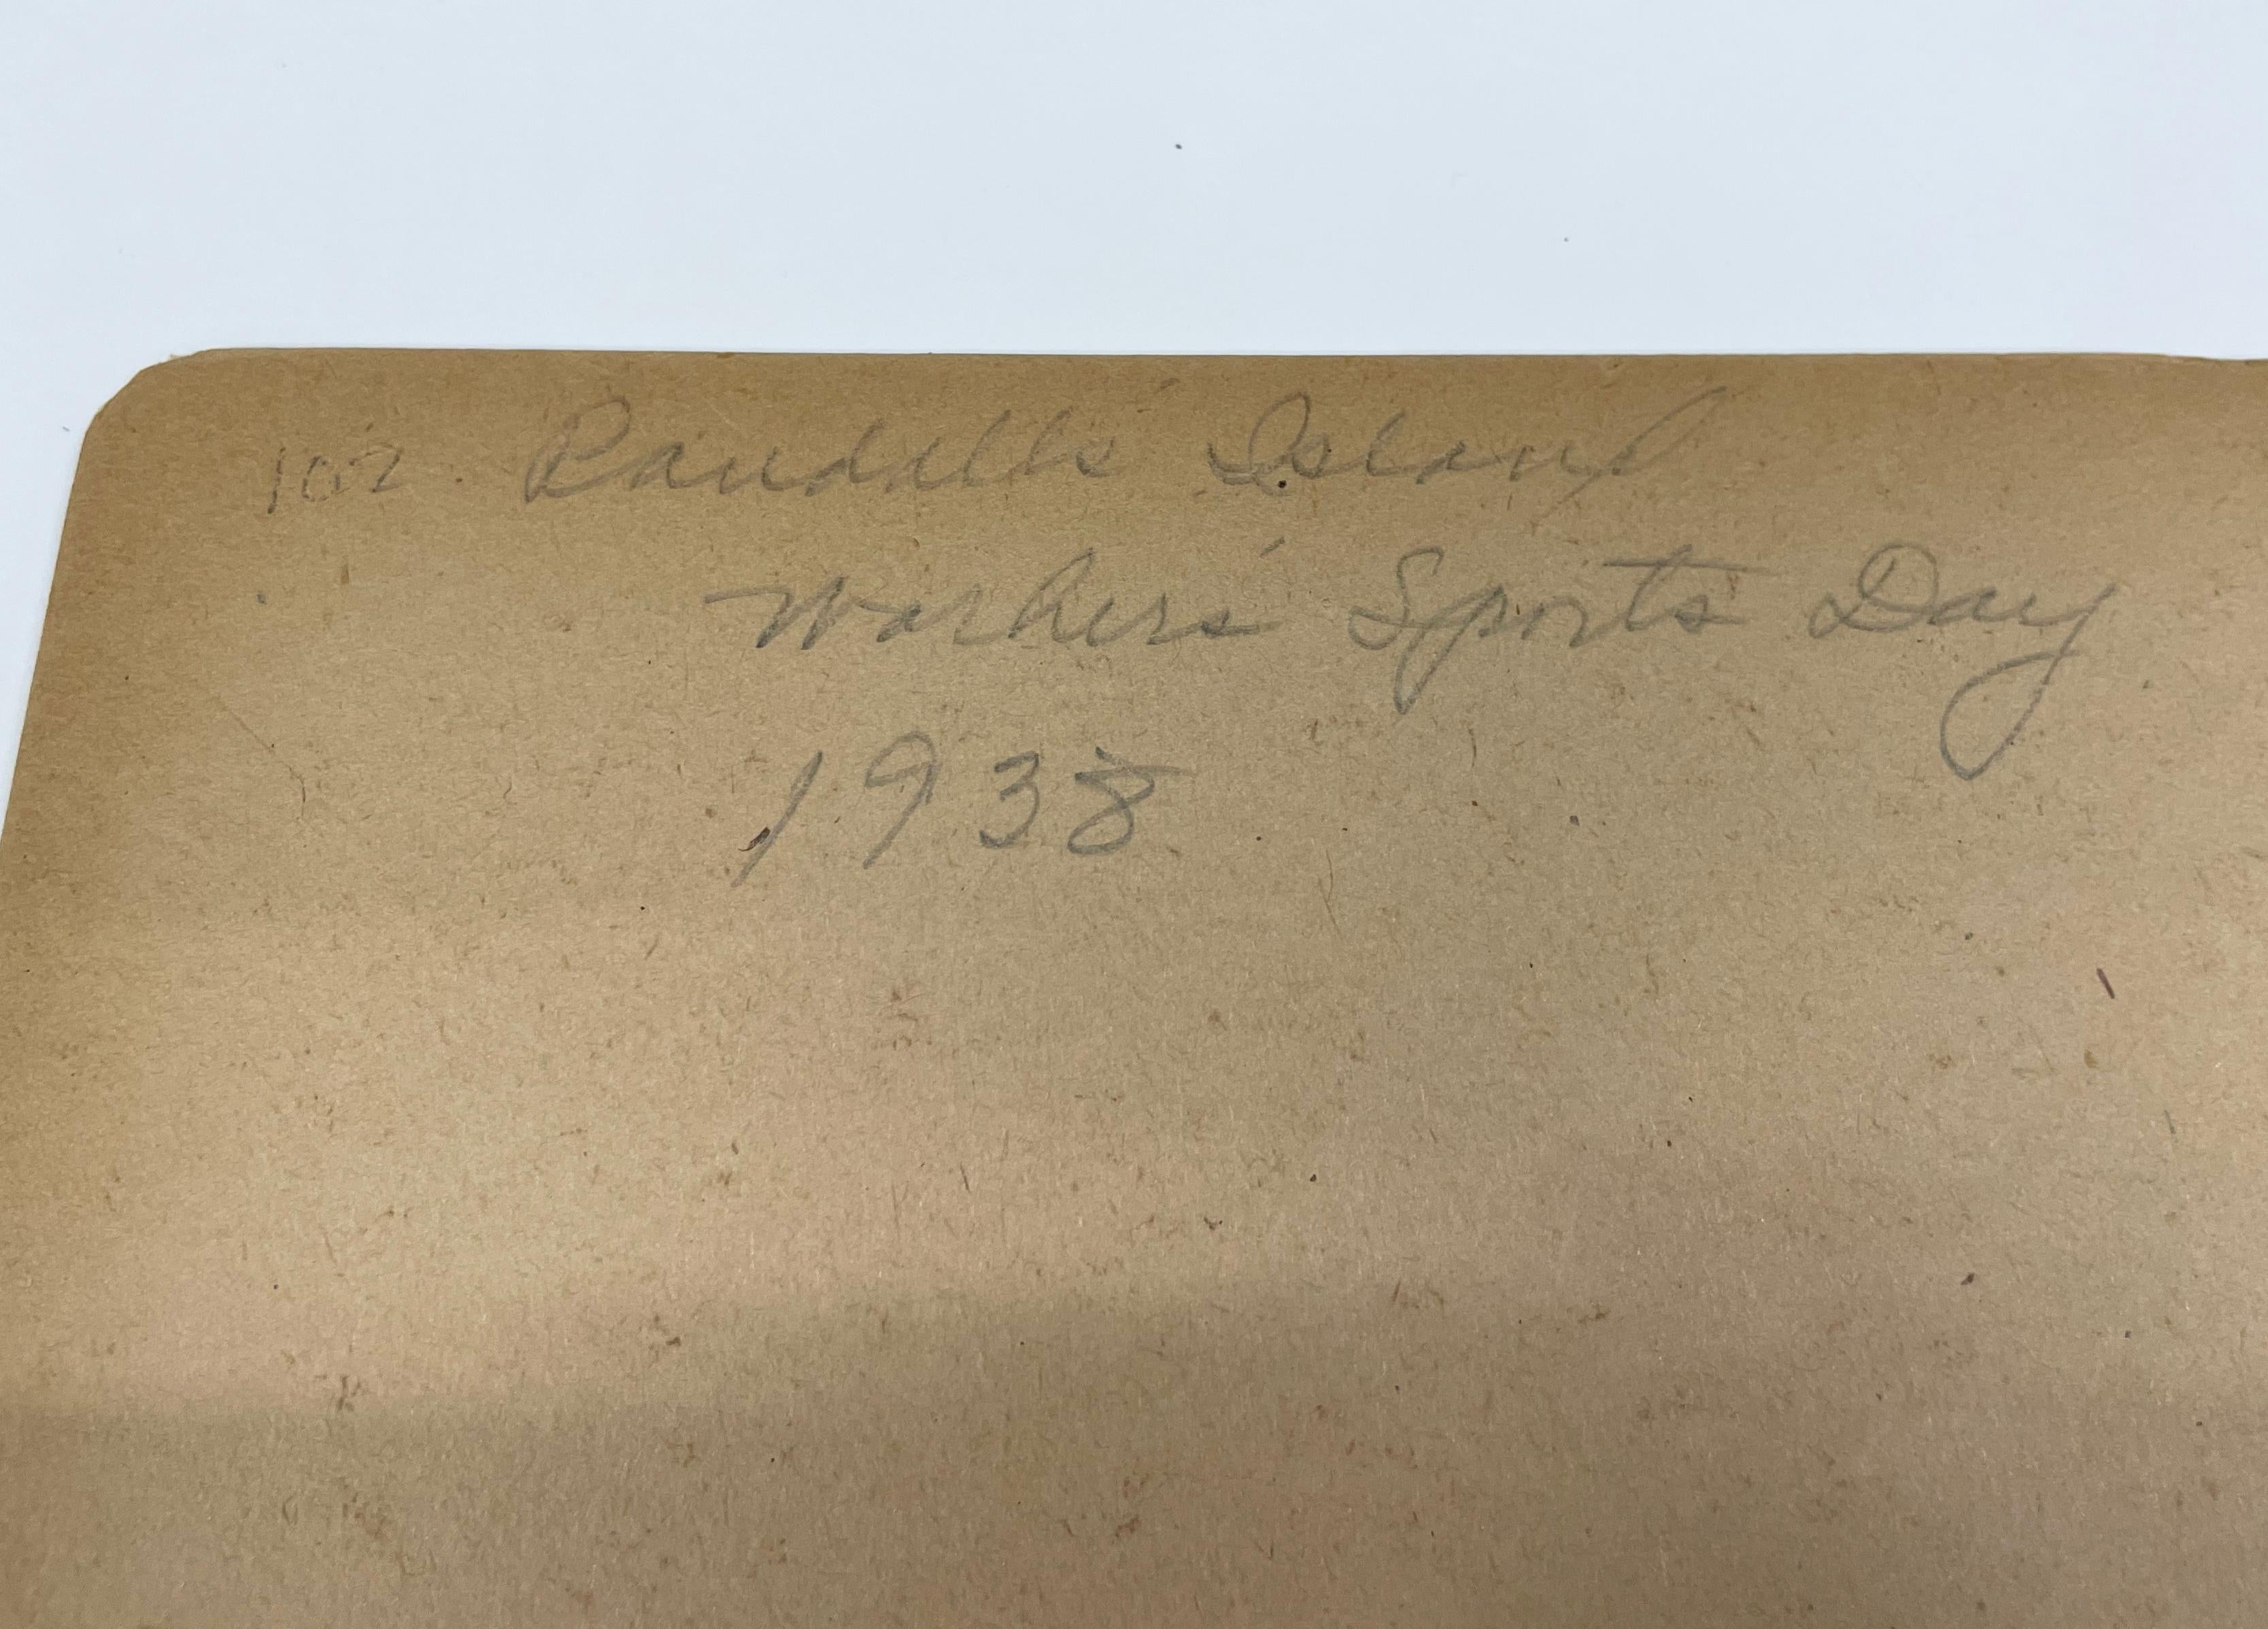 102. Randall's Island
Workers' Sports Day
1938